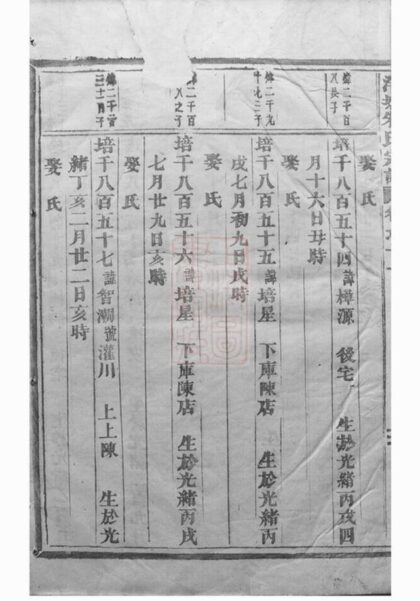 氏宗譜
娶 氏
二千百
八長子
培千八百五十四諱樟源 後宅 生於光緒丙戌四
月十六日丑時
娶 氏
二千九
培千八百五十五諱培星 下庫陳店 生於光緒丙
戌七月初九日戌時
娶 氏
二千百
八之子
培千八百五十六諱培星 下庫陳店 生於光緒丙戌
七月廿九日亥時
娶 氏
二千
子
培千八百五十七諱智潮號灌川 上上陳 生於光
緒丁亥二月廿二日亥時
娶 氏